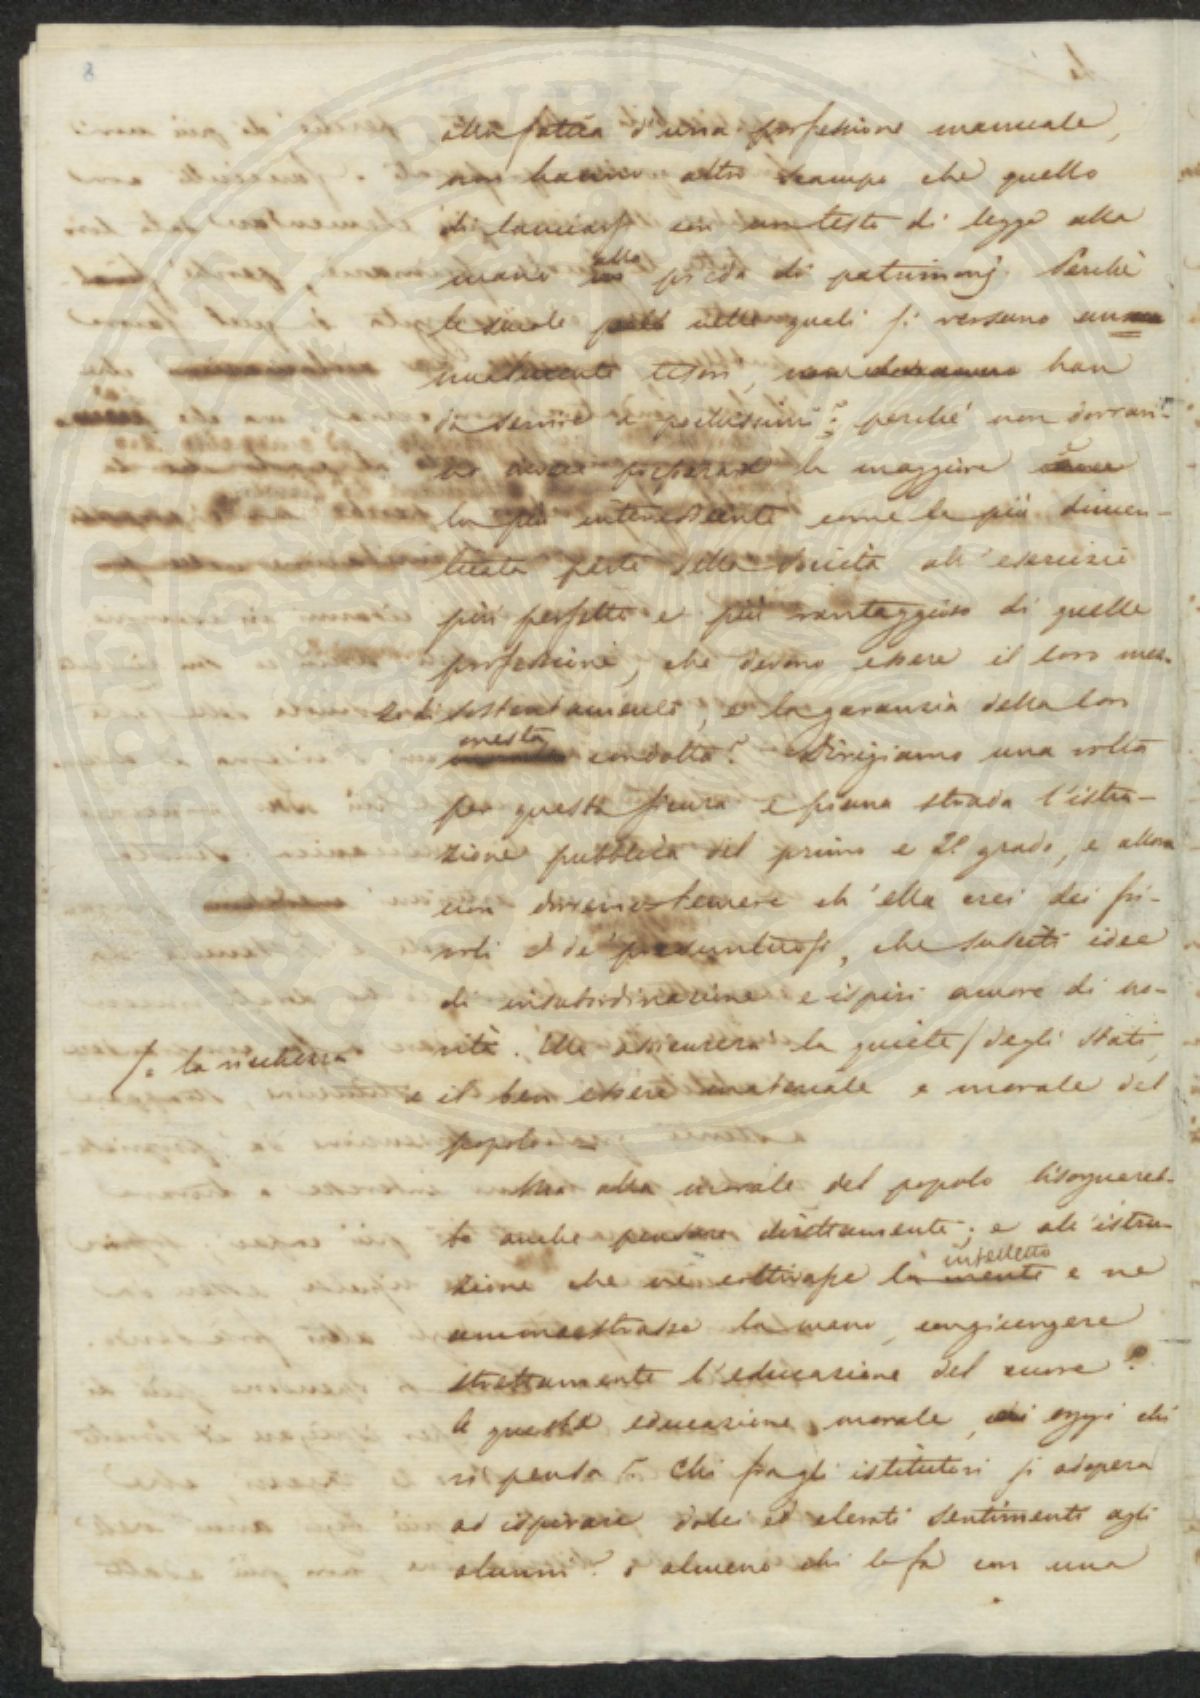 8
alla fatica d'una professione manuale,
non hanno altro scampo che quello
di lanciarsi con un testo di legge alla
mano alla preda di patrimonj. Perchè
le scuole nelle quali si versano annu
nualmente tesori, han
da servire a pochissimi? perchè non dovran-
no la maggiore
la più interessante come la più dimen-
ticata parte della società all'esercizio
più perfetto e più vantaggioso di quelle
professioni, che devono essere il loro mez-
zo di sostentamento, e la garanzia della loro
onesta condotta? Dirigiamo una volta
per questa sicura e piana strada l'istru-
zione pubblica del primo e 2º grado, e allora
non dovremo temere ch'ella crei dei fri-
voli e de' presuntuosi, che susciti idee
di insubordinazione e ispiri amore di no-
vità. Ella assicurerà la quiete / degli stati,
/ e la ricchezza
e il ben essere materiale e morale del
popolo.
Ma alla morale del popolo bisognereb-
be anche pensare direttamente; e all'istru-
zione che ne coltivasse la mente intelletto e ne
ammaestrasse la mano, congiungere
strettamente l'educazione del cuore?
A questa educazione morale, oggi chi
vi pensa? Chi fra gli istitutori si adopera
ad ispirare dolci ed elevati sentimenti agli
alunni? o almeno chi lo fa con una